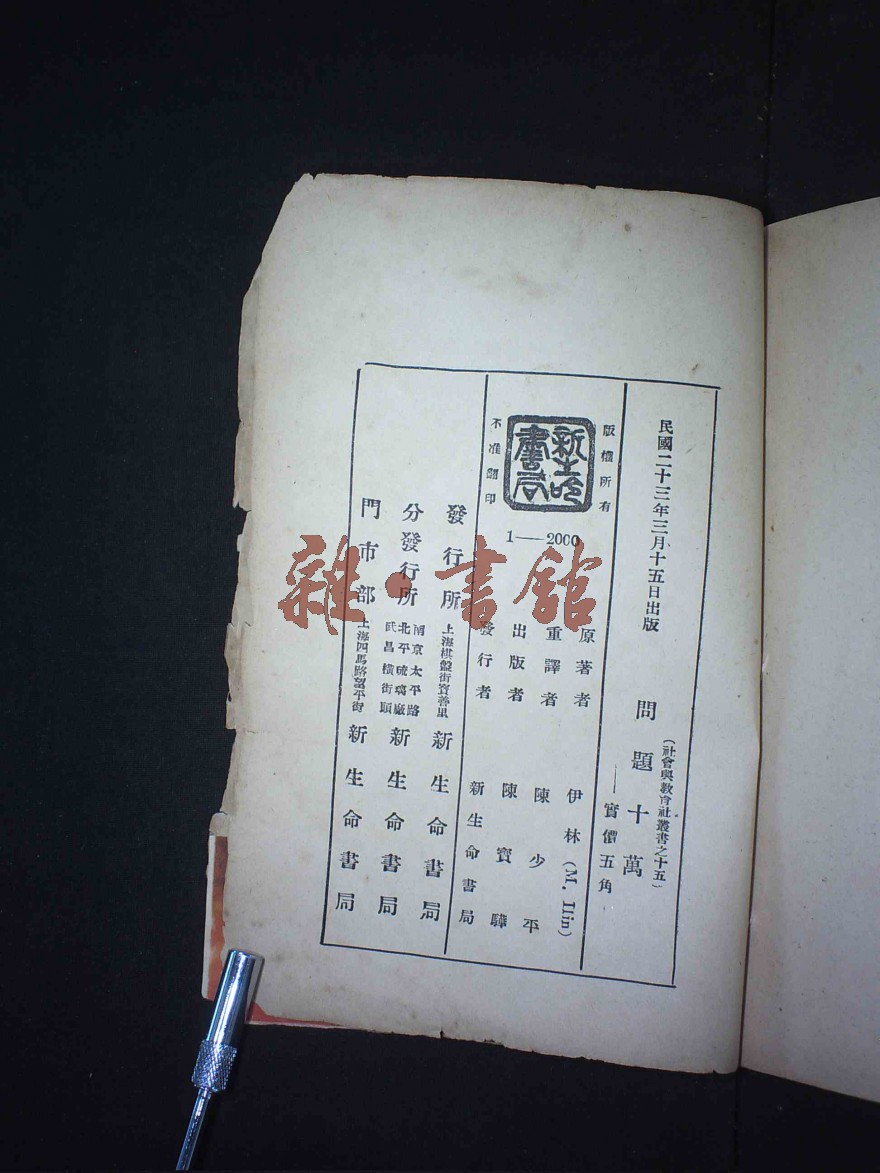 民國二十三年三月十五日出版
(社會與教育社叢書之十五)
問題十萬
——實價五角
版權所有
新生命書局
不准翻印
1—2000
原著者 伊林(M. Ilin)
重譯者 陳少平
出版者 陳寶驊
發行者 新生命書局
發行所 上海棋盤街寶善里 新生命書局
分發行所 南京太平路 北平琉璃廠 武昌橫街頭 新生命書局
門市部 上海四馬路望平街 新生命書局
雜·書館